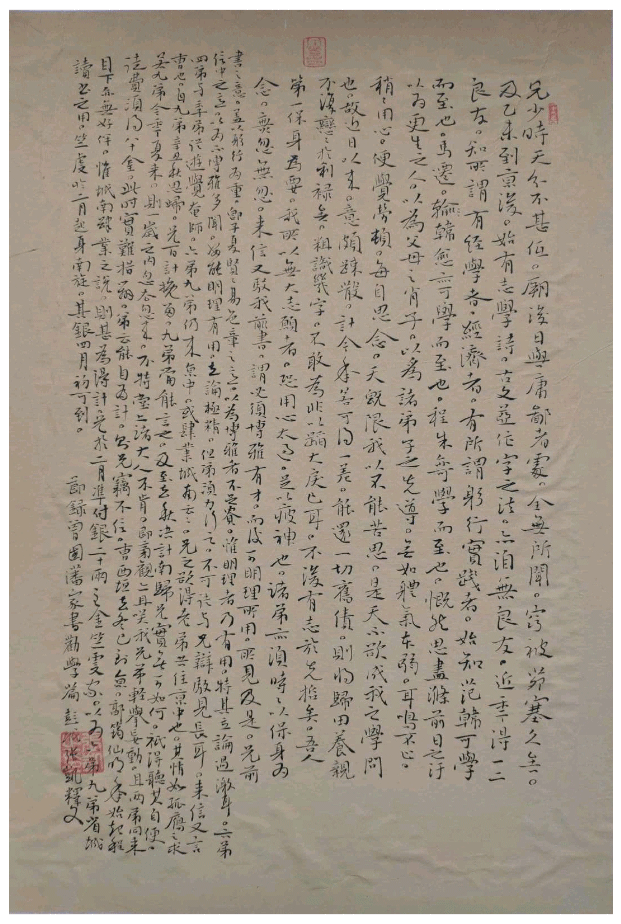 兄少時天分不甚低。厥後日與庸鄙者處。全無所聞。竅被茆塞久矣。
及乙未到京後。始有志學詩。古文並作字之法。亦洎無良友。近年得一二
良友。知所謂有經學者。經濟者。有所謂躬行實踐者。始知范韓可學
而至也。馬遷。韓愈亦可學而至也。程朱亦學而至也。慨然思盡滌前日之汙
以為更生之人。以為父母之肖子。以為諸弟子之先導。無如體氣本弱。耳鳴不止。
稍稍用心。便覺勞頓。每自思念。天既限我以不能苦思。是天不欲成我之學問
也。故近日以來。意頗疎散。計今年若可得一差。能還一切舊債。則將歸田養親
不復戀戀於利祿矣。粗識幾字。不敢為非以蹈大戾已耳。不復有志於先哲矣。吾人
第一保身為要。我所以無大志願者。恐用心太過。足以疲神也。諸弟亦須時時以保身為
念。無忽無忽。來信又駁我前書。謂必須博雅有才。而後可明理有用。所見及是。兄前
書之意。蓋以躬行為重。即子夏賢賢易色章之意。以為博雅者不足貴。惟明理者乃有用。特其立論過激耳。六弟
信中之意。以為不博雅多聞。安能明理有用。立論極精。但弟須力行之。不可徒與兄辯駁見長耳。來信又言
四弟與季弟從遊覺庵師。六弟九弟仍來京中。或肄業城南云云。兄之欲得老弟共住京中也。其情如孤雁之求
曹也。自九弟辛丑秋思歸。兄百計挽留。九弟當能言之。及至去秋決計南歸。兄實無可如何。祇得聽其自便。
若九弟今年復來。則一歲之內忽去忽來。不特堂上諸大人不肯。即旁觀亦且笑我兄弟輕舉妄動。且兩弟同來
途費須得八十金。此時實難措辦。弟云能自為計。則兄竊不信。曹西垣去冬已到京。郭筠仙明年始起程
目下亦無好伴。惟城南肄業之說。則甚為得計。兄於二月準付銀二十兩至金竺虔家。以為六弟九弟省城
讀書之用。竺虔於二月起身南旋。其銀四月初可到。
節錄曾國藩家書勸學篇